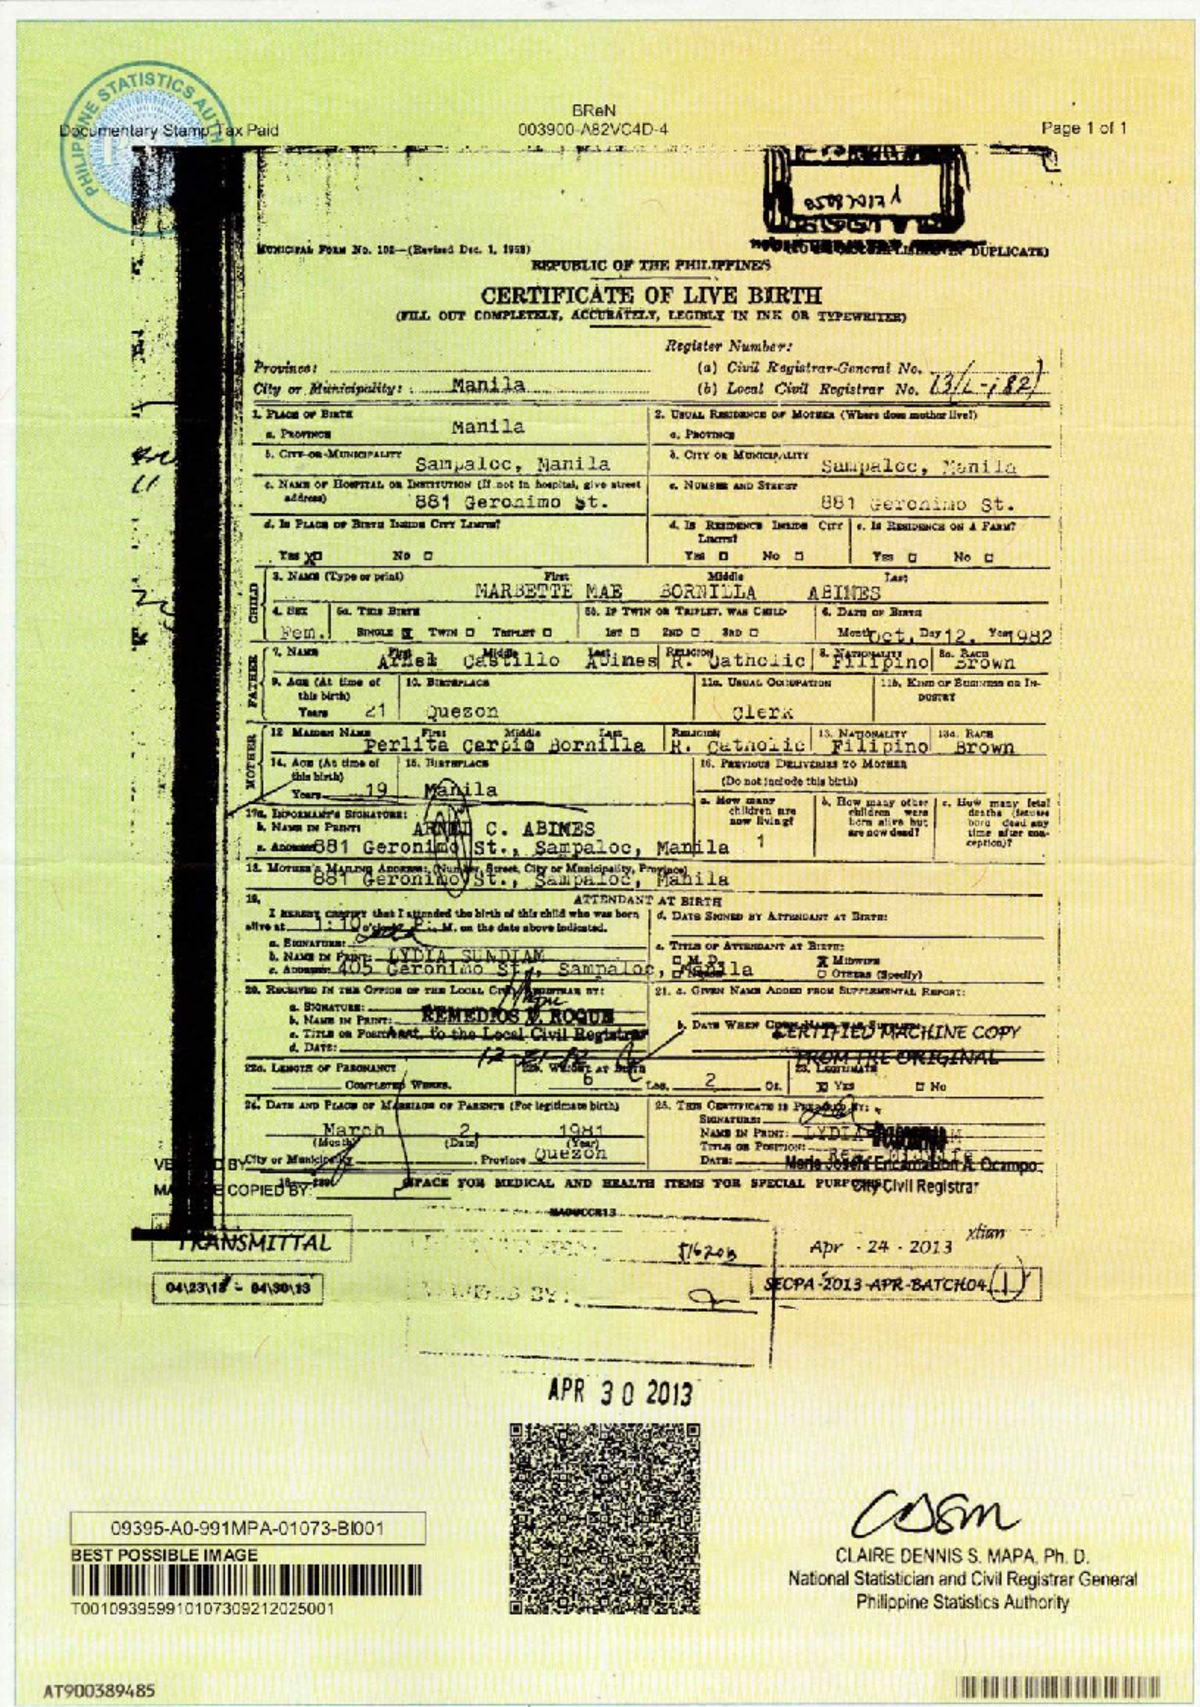 PHILIPPINE STATISTICS AUTH
Documentary Stamp Tax Paid
BReN
003900-A82VC4D-4
Page 1 of 1
MUNICIPAL FORM No. 102—(Revised Dec. 1, 1958)
DUPLICATE)
REPUBLIC OF THE PHILIPPINES
CERTIFICATE OF LIVE BIRTH
(FILL OUT COMPLETELY, ACCURATELY, LEGIBLY IN INK OR TYPEWRITER)
Register Number:
Province:
(a) Civil Registrar-General No.
City or Municipality: Manila
(b) Local Civil Registrar No.
1. PLACE OF BIRTH
a. PROVINCE Manila
2. USUAL RESIDENCE OF MOTHER (Where does mother live?)
a. PROVINCE
b. CITY OR MUNICIPALITY Sampaloc, Manila
b. CITY OR MUNICIPALITY Sampaloc, Manila
c. NAME OF HOSPITAL OR INSTITUTION (If not in hospital, give street address) 881 Geronimo St.
c. NUMBER AND STREET 881 Geronimo St.
d. IS PLACE OF BIRTH INSIDE CITY LIMITS?
Yes X No
d. IS RESIDENCE INSIDE CITY LIMITS?
Yes No
e. IS RESIDENCE ON A FARM?
Yes No
CHILD
3. NAME (Type or print) First Middle Last
MARBETTE MAE BORNILLA ABINES
4. SEX Fem.
5a. THIS BIRTH
SINGLE X TWIN TRIPLET
5b. IF TWIN OR TRIPLET, WAS CHILD
1ST 2ND 3RD
6. DATE OF BIRTH
Month Oct. Day 12, Year 1982
FATHER
7. NAME First Middle Last
Arnel Castillo Abines
RELIGION R. Catholic
8. NATIONALITY Filipino
8a. RACE Brown
9. AGE (At time of this birth) Years 21
10. BIRTHPLACE Quezon
11a. USUAL OCCUPATION Clerk
11b. KIND OF BUSINESS OR INDUSTRY
MOTHER
12 MAIDEN NAME First Middle Last
Perlita Carpio Bornilla
RELIGION R. Catholic
13. NATIONALITY Filipino
13a. RACE Brown
14. AGE (At time of this birth) Years 19
15. BIRTHPLACE Manila
16. PREVIOUS DELIVERIES TO MOTHER
(Do not include this birth)
a. How many children are now living? 1
b. How many other children were born alive but are now dead?
c. How many fetal deaths (fetuses born dead any time after conception)?
17a. INFORMANT'S SIGNATURE:
b. NAME IN PRINT: ARNEL C. ABINES
c. ADDRESS 881 Geronimo St., Sampaloc, Manila
18. MOTHER'S MAILING ADDRESS: (Number, Street, City or Municipality, Province)
881 Geronimo St., Sampaloc, Manila
19. ATTENDANT AT BIRTH
I HEREBY CERTIFY that I attended the birth of this child who was born alive at 1:10 o'clock P. M. on the date above indicated.
a. SIGNATURE:
b. NAME IN PRINT: LYDIA SUNDIAM
c. ADDRESS: 405 Geronimo St., Sampaloc, Manila
d. DATE SIGNED BY ATTENDANT AT BIRTH:
e. TITLE OF ATTENDANT AT BIRTH:
M.D. X MIDWIFE
OTHERS (Specify)
20. RECEIVED IN THE OFFICE OF THE LOCAL CIVIL REGISTRAR BY:
a. SIGNATURE:
b. NAME IN PRINT: REMEDIOS ROQUE
c. TITLE OR POSITION: Asst. to the Local Civil Registrar
d. DATE:
21. a. GIVEN NAME ADDED FROM SUPPLEMENTAL REPORT:
b. DATE WHEN
CERTIFIED MACHINE COPY
FROM THE ORIGINAL
22a. LENGTH OF PREGNANCY
COMPLETED WEEKS.
22b. WEIGHT AT BIRTH
6 Lbs. 2 Oz.
23. LEGITIMATE
X YES No
24. DATE AND PLACE OF MARRIAGE OF PARENTS (For legitimate birth)
March 2, 1981
(Month) (Date) (Year)
City or Municipality Province Quezon
25. THIS CERTIFICATE IS PREPARED BY:
SIGNATURE:
NAME IN PRINT: LYDIA
TITLE OR POSITION:
DATE:
Maria Josefa Encarnacion A. Ocampo
City Civil Registrar
COPIED BY:
SPACE FOR MEDICAL AND HEALTH ITEMS FOR SPECIAL PURPOSES
TRANSMITTAL
04\23\13 - 04\30\13
Apr - 24 - 2013
xtian
SECPA-2013-APR-BATCH04 (1)
APR 30 2013
09395-A0-991MPA-01073-BI001
BEST POSSIBLE IMAGE
T00109395991010730921202 5001
CLAIRE DENNIS S. MAPA, Ph. D.
National Statistician and Civil Registrar General
Philippine Statistics Authority
AT900389485